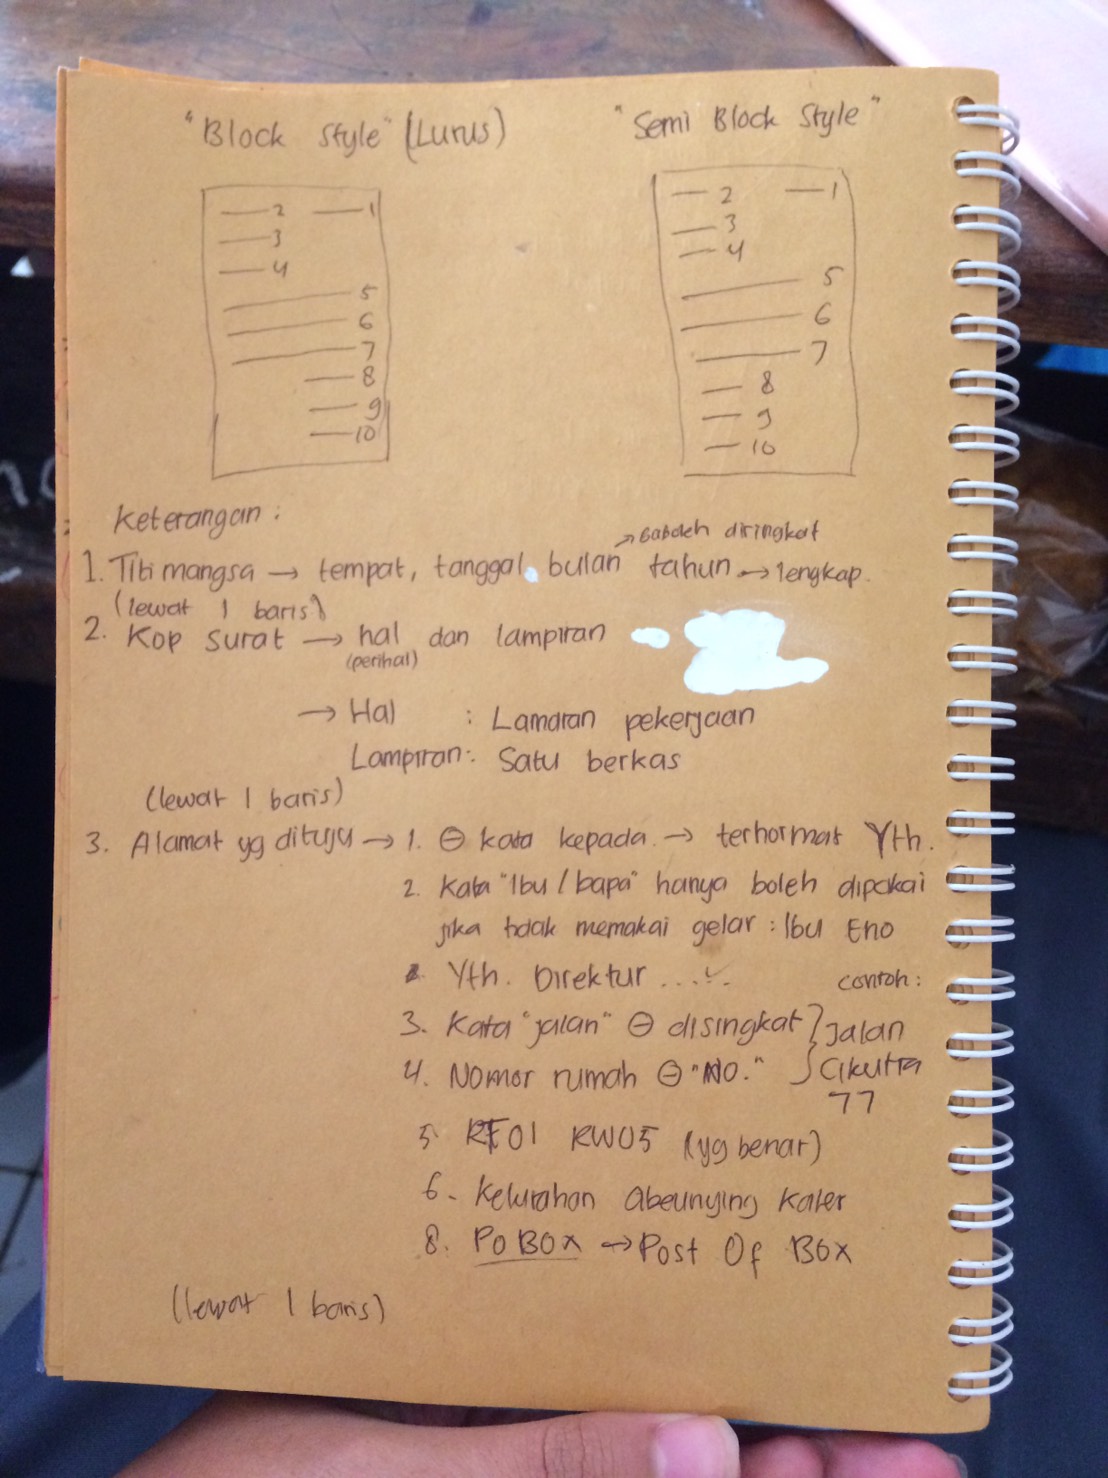 "Block Style" (Lurus)
"Semi Block Style"
2 1
3
4
5
6
7
8
9
10
2 1
3
4
5
6
7
8
9
10
Keterangan :
→ Gaboleh diringkat
1. Titi mangsa → tempat, tanggal, bulan tahun → lengkap.
(lewat 1 baris)
2. Kop surat → hal dan lampiran
(perihal)
→ Hal : Lamaran pekerjaan
Lampiran : Satu berkas
(lewat 1 baris)
3. Alamat yg dituju → 1. ⊖ kata kepada. → terhormat Yth.
2. Kata "Ibu / bapa" hanya boleh dipakai
jika tidak memakai gelar : Ibu Eno
Yth. Direktur ...
contoh :
3. Kata "jalan" ⊖ disingkat } Jalan
4. Nomor rumah ⊖ "No." Cikutra
77
5. RT01 RW05 (yg benar)
6. Kelurahan Cibeunying Kaler
8. PO BOX → Post Of BOX
(lewat 1 baris)